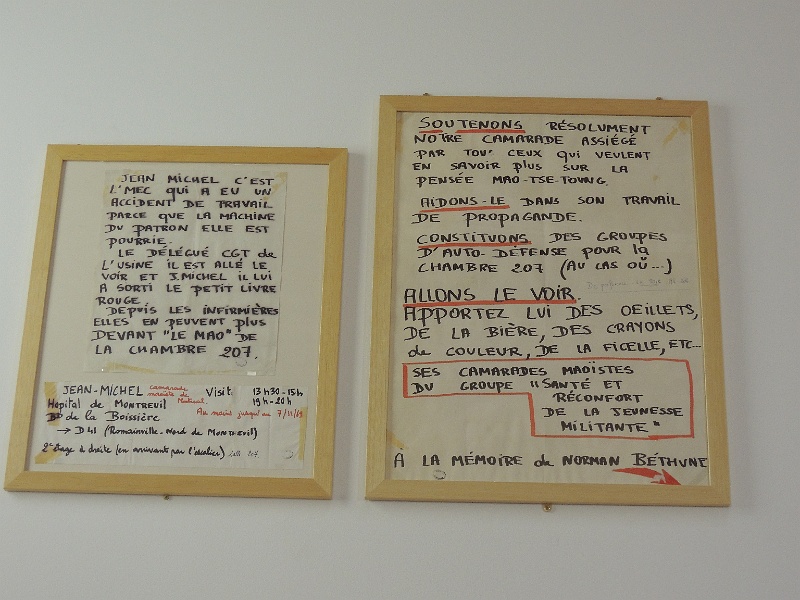 JEAN MICHEL C'EST
L'MEC QUI A EU UN
ACCIDENT DE TRAVAIL
PARCE QUE LA MACHINE
DU PATRON ELLE EST
POURRIE.
LE DÉLÉGUÉ CGT de
L'USINE IL EST ALLÉ LE
VOIR ET J.MICHEL IL LUI
A SORTI LE PETIT LIVRE
ROUGE
DEPUIS LES INFIRMIÈRES
ELLES EN PEUVENT PLUS
DEVANT "LE MAO" DE
LA CHAMBRE 207.
JEAN-MICHEL camarade maoïste de Visit. 13h30-15h
19h-20h
Hôpital de MONTREUIL
Au moins jusqu'au 7/11/69
Bd de la Boissière
→ D 41 (Romainville. Nord de MONTREUIL)
2e étage à droite (en arrivant par l'escalier) Salle 207
SOUTENONS RÉSOLUMENT
NOTRE CAMARADE ASSIÉGÉ
PAR TOU' CEUX QUI VEULENT
EN SAVOIR PLUS SUR LA
PENSÉE MAO-TSE-TOUNG.
AIDONS-LE DANS SON TRAVAIL
DE PROPAGANDE.
CONSTITUONS DES GROUPES
D'AUTO-DÉFENSE POUR la
CHAMBRE 207 (AU CAS OÙ...)
ALLONS LE VOIR.
APPORTEZ LUI DES OEILLETS,
DE LA BIÈRE, DES CRAYONS
de COULEUR, DE LA FICELLE, ETC...
SES CAMARADES MAOÏSTES
DU GROUPE "SANTÉ ET
RÉCONFORT
DE LA JEUNESSE
MILITANTE"
À LA MÉMOIRE de NORMAN BÉTHUNE